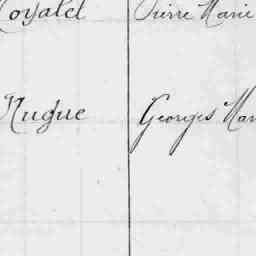 Coyatel Pierre Marie
Nugue Georges Mar